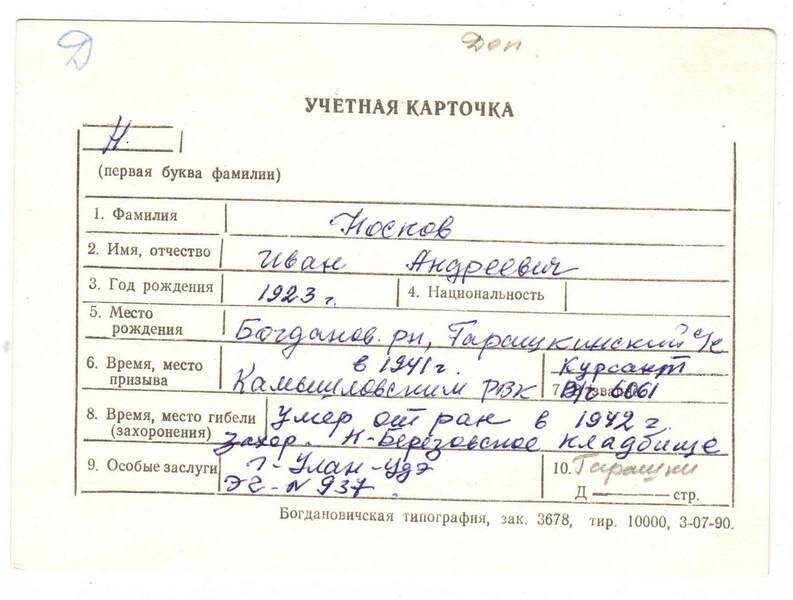 Д
Доп.
УЧЕТНАЯ КАРТОЧКА
Н.
(первая буква фамилии)
1. Фамилия Носков
2. Имя, отчество Иван Андреевич
3. Год рождения 1923 г. 4. Национальность
5. Место
рождения Богданов. рн, Гарашкинский с/с
6. Время, место в 1941 г. Курсант
призыва Камышловским РВК 7. Звание в/ч 6061
8. Время, место гибели Умер от ран в 1942 г.
(захоронения) Захор. Н-Березовское кладбище
9. Особые заслуги г-Улан-Удэ 10. Гарашки
ЭГ-N 937. Д — стр.
Богдановичская типография, зак. 3678, тир. 10000, 3-07-90.